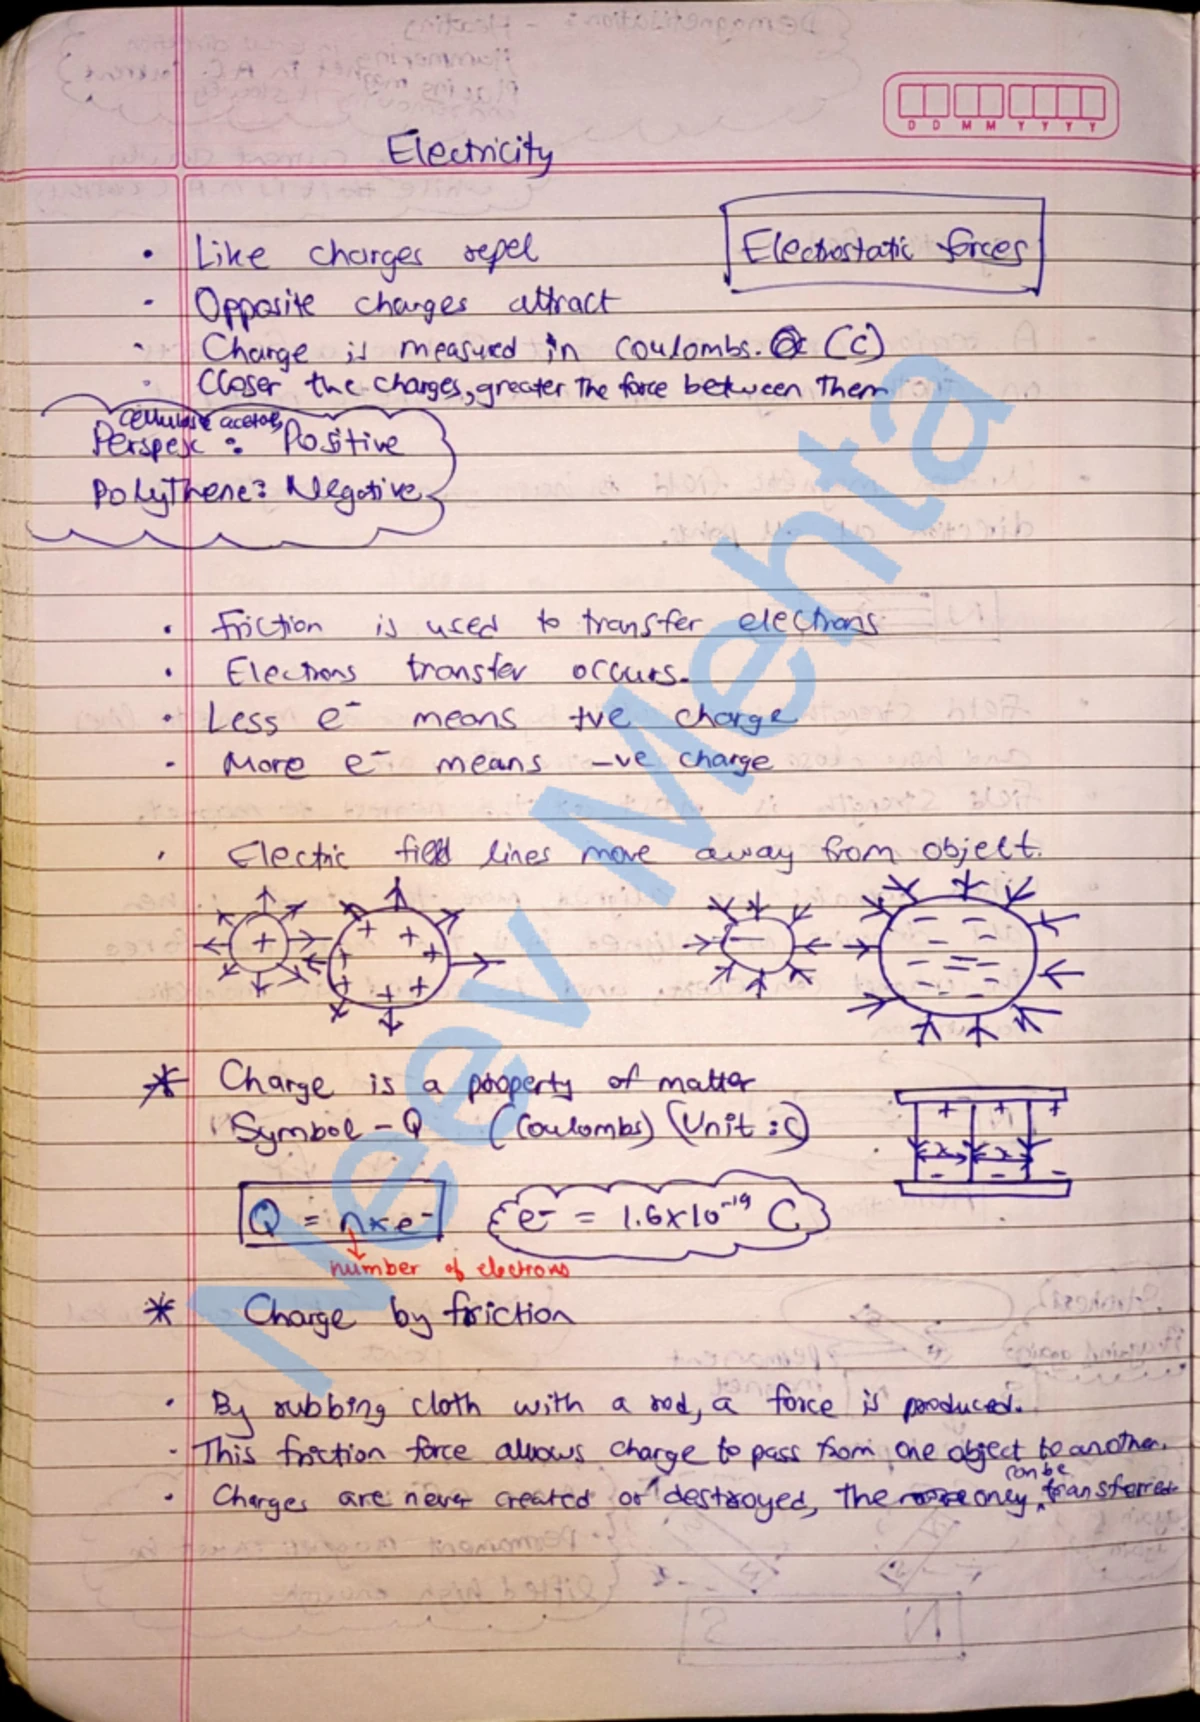 D D M M Y Y Y Y
Electricity
Electrostatic forces
• Like charges repel
• Opposite charges attract
• Charge is measured in coulombs. (C)
• Closer the charges, greater the force between them
Cellulose acetate
Perspex : Positive
Polythene : Negative
• Friction is used to transfer electrons
• Electrons transfer occurs.
• Less e⁻ means +ve charge
• More e⁻ means -ve charge
• Electric field lines move away from object.
* Charge is a property of matter
Symbol - Q (Coulombs) (Unit : C)
Q = n × e⁻
e⁻ = 1.6×10⁻¹⁹ C
number of electrons
* Charge by friction
• By rubbing cloth with a rod, a force is produced.
• This friction force allows charge to pass from one object to another.
• Charges are never created or destroyed, the only can be transferred
Neev Mehta